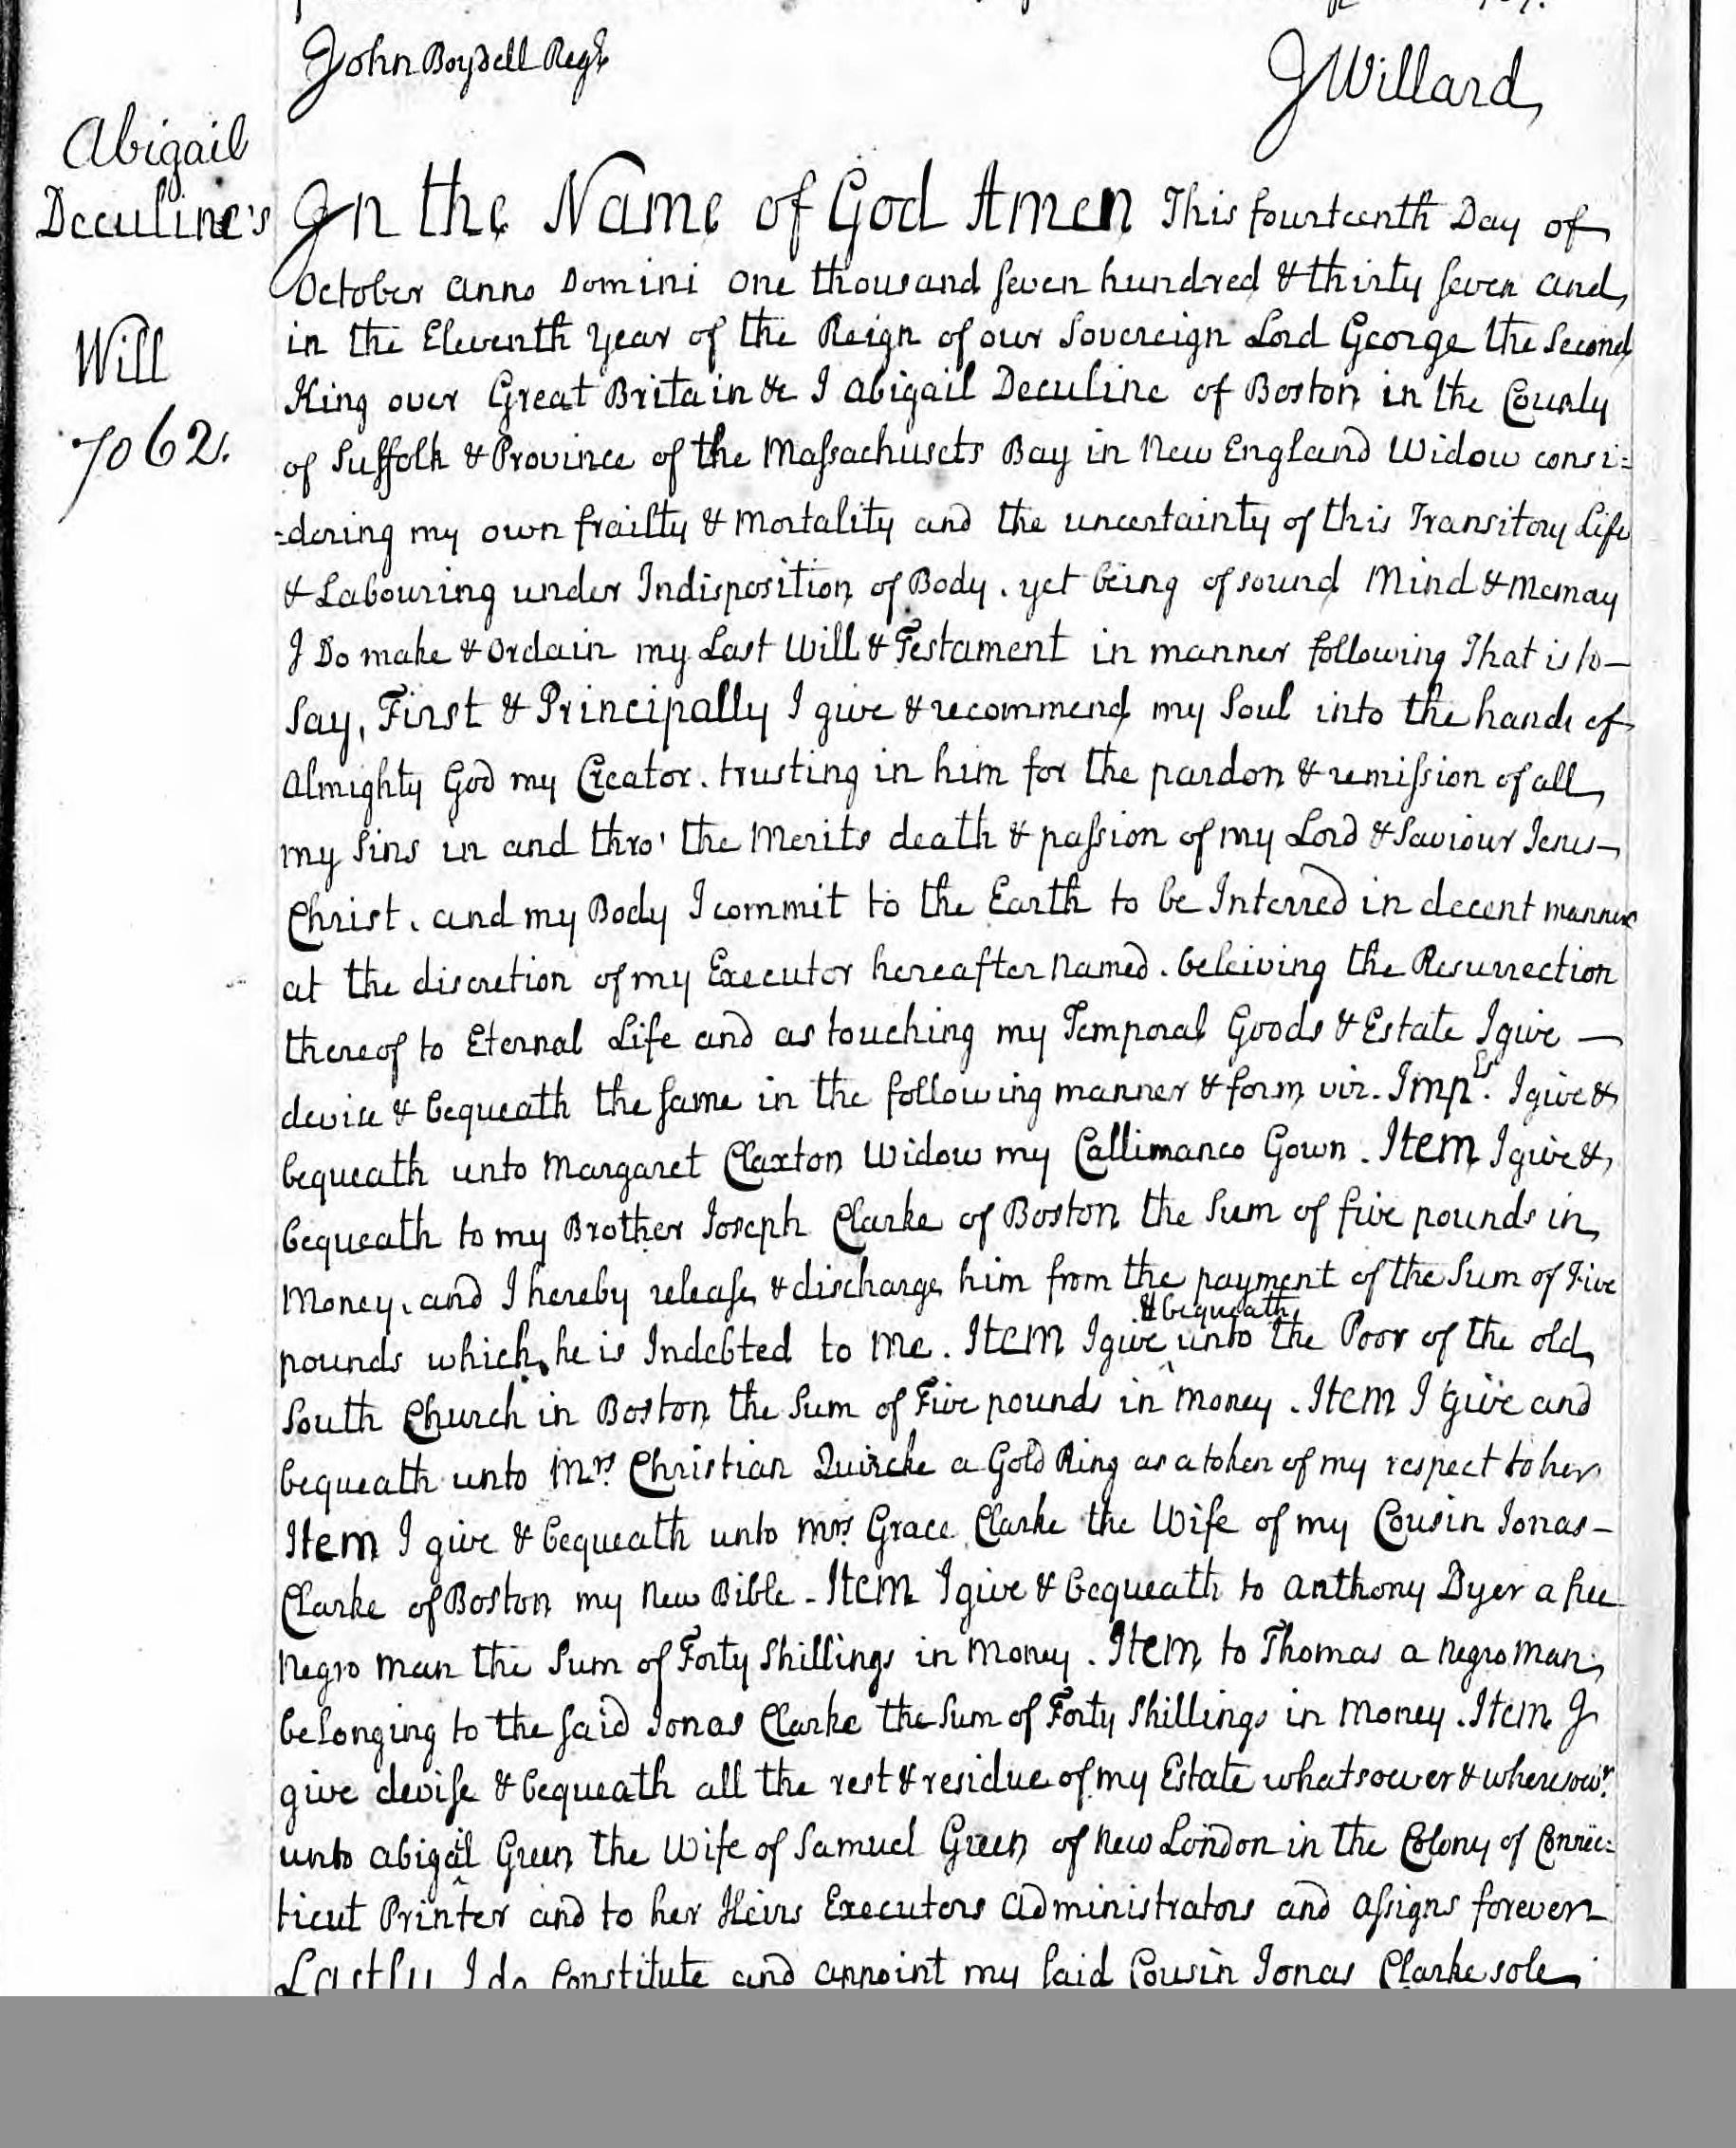 John Boydell Regr.
J Willard
Abigail
Deculine's
Will
7062.
In the Name of God Amen This fourteenth Day of
October anno Domini One thousand seven hundred & thirty seven and
in the Eleventh Year of the Reign of our Sovereign Lord George the Second
King over Great Britain &c I Abigail Deculine of Boston in the County
of Suffolk & Province of the Massachusets Bay in New England Widow consi=
=dering my own frailty & Mortality and the uncertainty of this Transitory Life
& Labouring under Indisposition of Body. yet being of sound Mind & Memory
I Do make & Ordain my Last Will & Testament in manner following That is to—
Say, First & Principally I give & recommend my Soul into the hands of
Almighty God my Creator. trusting in him for the pardon & remission of all
my Sins in and thro' the Merits death & passion of my Lord & Saviour Jesus—
Christ. and my Body I commit to the Earth to be Interred in decent manner
at the discretion of my Executor hereafter named. beleiving the Resurrection
thereof to Eternal Life and as touching my Temporal Goods & Estate I give —
devise & bequeath the same in the following manner & form viz. Imprs. I give &
bequeath unto Margaret Claxton Widow my Callimanco Gown. Item I give &
bequeath to my Brother Joseph Clarke of Boston the Sum of five pounds in
Money, and I hereby release & discharge him from the payment of the Sum of Five
pounds which he is Indebted to me. Item I give & bequeath unto the Poor of the old
South Church in Boston the Sum of Five pounds in money. Item I give and
bequeath unto Mrs. Christian Quircke a Gold Ring as a token of my respect to her
Item I give & bequeath unto Mrs. Grace Clarke the Wife of my Cousin Jonas—
Clarke of Boston my New Bible - Item I give & bequeath to Anthony Dyer a free
Negro man the Sum of Forty Shillings in Money. Item to Thomas a Negro Man
belonging to the said Jonas Clarke the Sum of Forty Shillings in Money. Item I
give devise & bequeath all the rest & residue of my Estate whatsoever & wheresoevr.
unto Abigail Green the Wife of Samuel Green of New London in the Colony of Connec=
ticut Printer and to her Heirs Executors Administrators and Assigns forever
Lastly I do Constitute and appoint my said Cousin Jonas Clarke sole